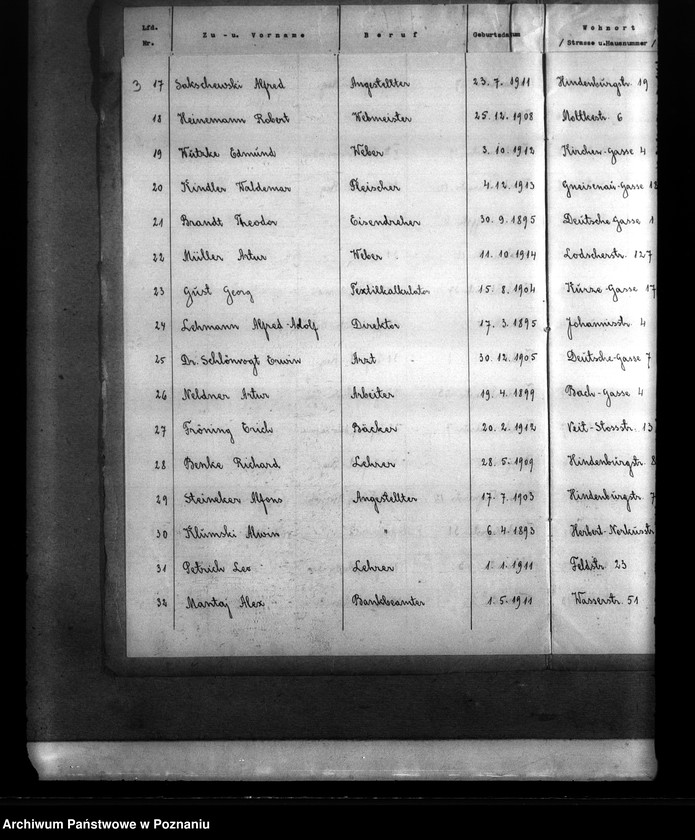 Lfd. Nr. Zu - u. Vorname Beruf Geburtsdatum Wohnort
/ Strasse u.Hausnummer /
3 17 Sakschewski Alfred Angestellter 23. 7. 1911 Hindenburgstr. 19
18 Heinemann Robert Webmeister 25. 12. 1908 Moltkestr. 6
19 Wutzke Edmund Weber 3. 10. 1912 Kirchen-Gasse 4
20 Kindler Waldemar Fleischer 4. 12. 1913 Gneisenau-Gasse
21 Brandt Theodor Eisendreher 30. 9. 1895 Deutsche Gasse 1
22 Müller Artur Weber 11. 10. 1914 Lodscherstr. 127
23 Gust Georg Textilkalkulator 15. 8. 1904 Kurze-Gasse 17
24 Lehmann Alfred-Adolf Direktor 17. 3. 1895 Johannisstr. 4
25 Dr. Schlönvogt Erwin Arzt 30. 12. 1905 Deutsche-Gasse 7
26 Neldner Artur Arbeiter 19. 4. 1899 Bach-Gasse 4
27 Fröning Erich Bäcker 20. 2. 1912 Veit-Stossstr. 13
28 Benke Richard Lehrer 28. 5. 1909 Hindenburgstr. 8
29 Steineker Alfons Angestellter 17. 7. 1903 Hindenburgstr. 7
30 Klumski Alwin " 6. 4. 1893 Herbert-Norkusstr
31 Petrich Leo Lehrer 1. 1. 1911 Feldstr. 23
32 Mantaj Alex Bankbeamter 1. 5. 1911 Wasserstr. 51
Archiwum Państwowe w Poznaniu